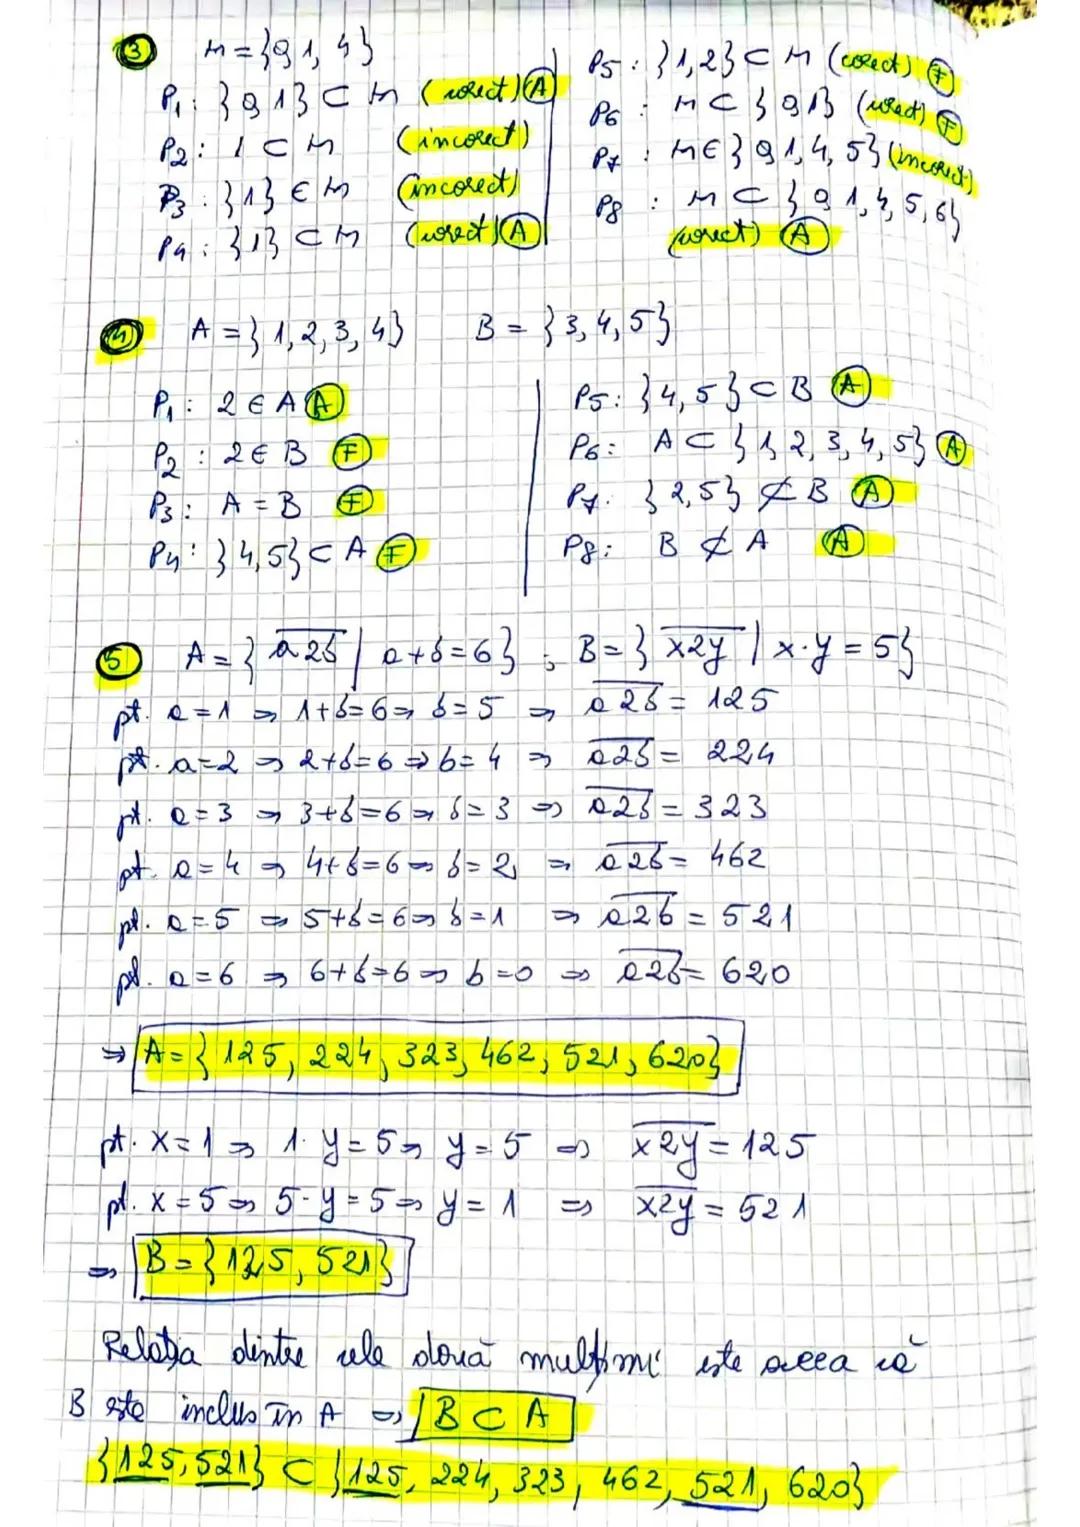 3 M = {0, 1, 4}
P1: {0, 1} ⊂ M (corect) A
P2: 1 ⊂ M (incorect)
P3: {1} ∈ M (incorect)
P4: {1} ⊂ M (corect) A
P5: {1, 2} ⊂ M (corect) F
P6: M ⊂ {0, 1} (corect) F
P7: M ∈ {0, 1, 4, 5} (incorect)
P8: M ⊂ {0, 1, 4, 5, 6}
(corect) A
4 A = {1, 2, 3, 4} B = {3, 4, 5}
P1: 2 ∈ A A
P2: 2 ∈ B F
P3: A = B F
P4: {4, 5} ⊂ A F
P5: {4, 5} ⊂ B A
P6: A ⊂ {1, 2, 3, 4, 5} A
P7. {2, 5} ⊄ B A
P8: B ⊄ A A
5 A = {a̅2̅b̅ | a + b = 6}; B = {x̅2̅y̅ | x · y = 5}
pt. a = 1 ⇒ 1 + b = 6 ⇒ b = 5 ⇒ a̅2̅b̅ = 125
pt. a = 2 ⇒ 2 + b = 6 ⇒ b = 4 ⇒ a̅2̅b̅ = 224
pt. a = 3 ⇒ 3 + b = 6 ⇒ b = 3 ⇒ a̅2̅b̅ = 323
pt. a = 4 ⇒ 4 + b = 6 ⇒ b = 2 ⇒ a̅2̅b̅ = 462
pt. a = 5 ⇒ 5 + b = 6 ⇒ b = 1 ⇒ a̅2̅b̅ = 521
pt. a = 6 ⇒ 6 + b = 6 ⇒ b = 0 ⇒ a̅2̅b̅ = 620
⇒ A = {125, 224, 323, 462, 521, 620}
pt. x = 1 ⇒ 1 · y = 5 ⇒ y = 5 ⇒ x̅2̅y̅ = 125
pt. x = 5 ⇒ 5 · y = 5 ⇒ y = 1 ⇒ x̅2̅y̅ = 521
⇒ B = {125, 521}
Relația dintre cele două mulțimi este aceea că
B este inclus în A ⇒ B ⊂ A
{125, 521} ⊂ {125, 224, 323, 462, 521, 620}